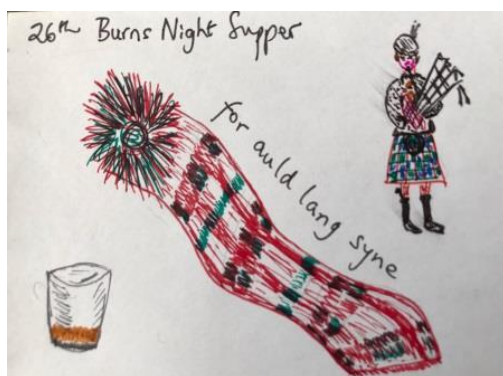 26th Burns Night Supper
for auld lang syne